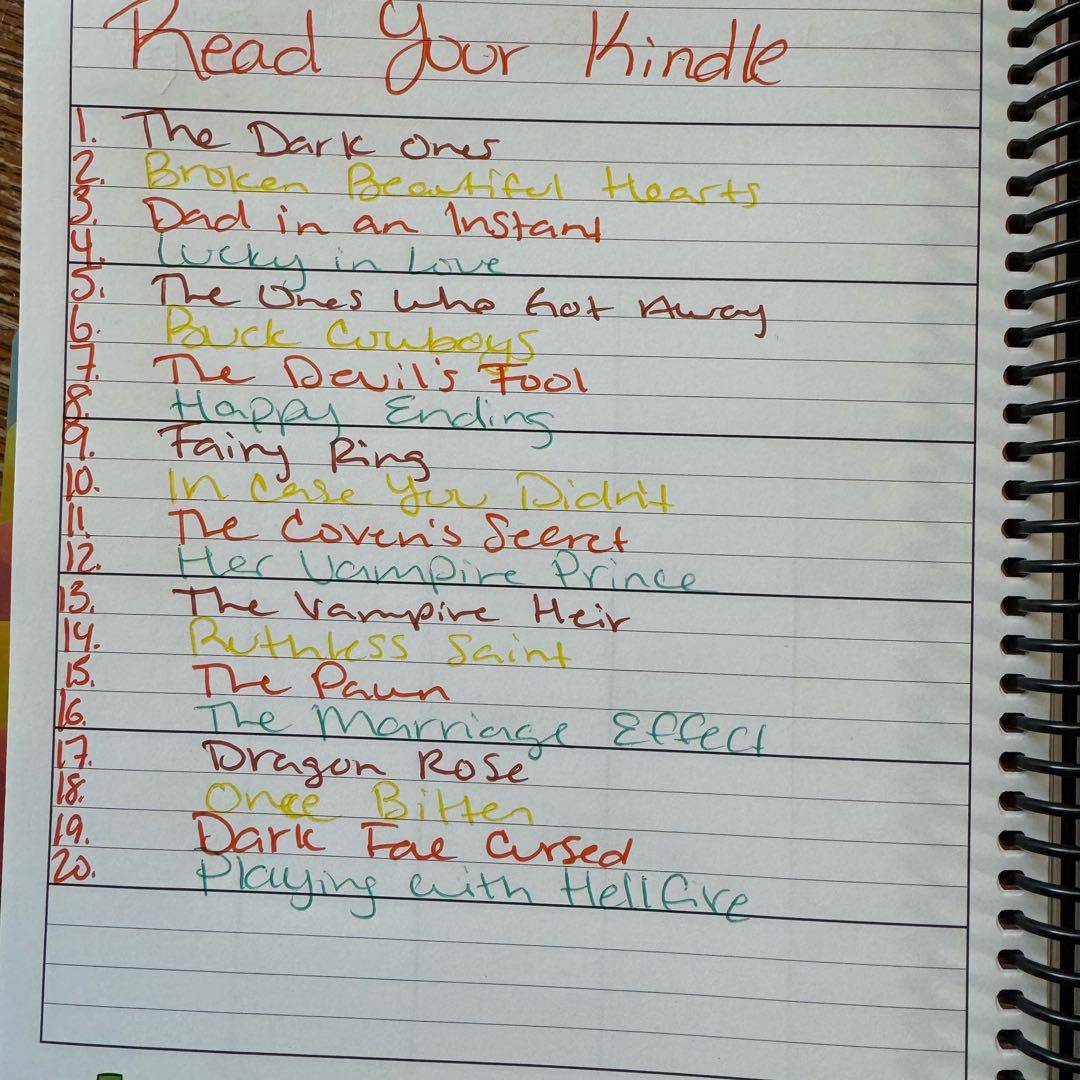 Read Your Kindle
1. The Dark Ones
2. Broken Beautiful Hearts
3. Dad in an Instant
4. Lucky in Love
5. The Ones Who Got Away
6. Cowboys
7. The Devil's Fool
8. Happy Ending
9. Fairy Ring
10. In Case You Didn't
11. The Coven's Secret
12. Her Vampire Prince
13. The Vampire Heir
14. Ruthless Saint
15. The Pawn
16. The Marriage Effect
17. Dragon Rose
18. Once Bitten
19. Dark Fae Cursed
20. Playing with Hellfire